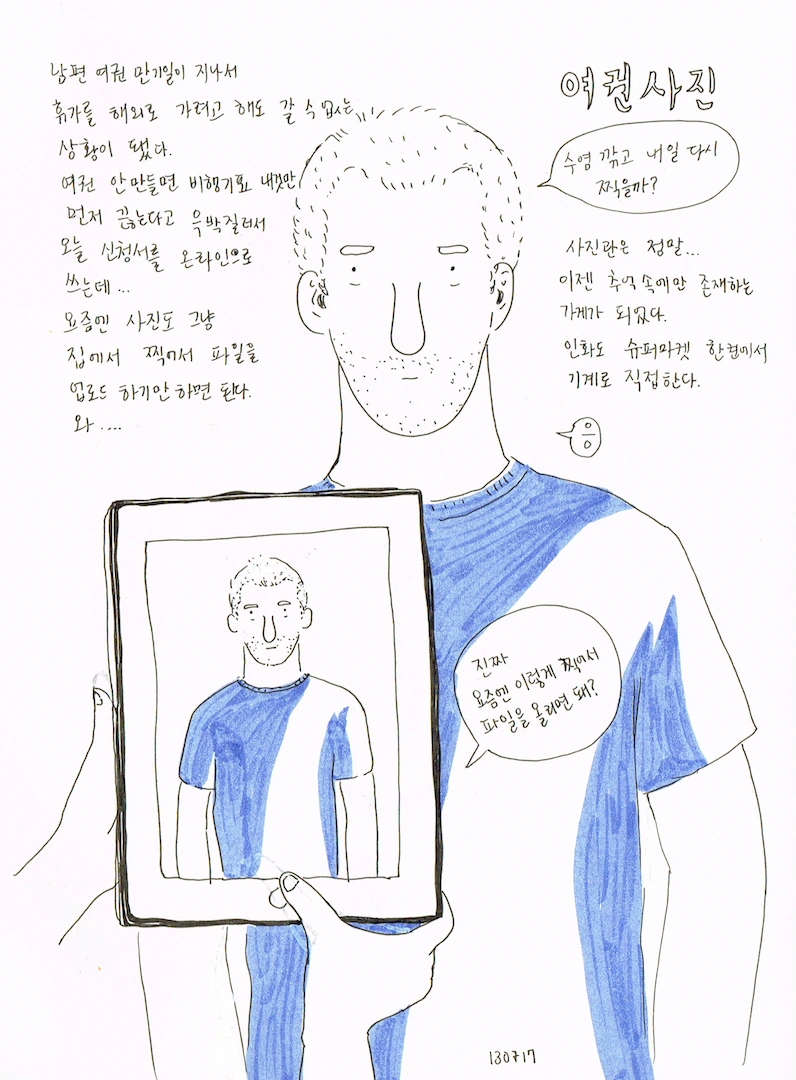 여권사진
남편 여권 만기일이 지나서
휴가를 해외로 가려고 해도 갈 수 없는
상황이 됐다.
여권 안만들면 비행기표 내것만
먼저 끊는다고 윽박질러서
오늘 신청서를 온라인으로
쓰는데...
요즘엔 사진도 그냥
집에서 찍어서 파일을
업로드 하기만 하면 된다.
와....
수염 깎고 내일 다시
찍을까?
사진관은 정말...
이젠 추억 속에만 존재하는
가게가 되었다.
인화도 슈퍼마켓 한켠에서
기계로 직접한다.
응
진짜
요즘엔 이렇게 찍어서
파일을 올리면 돼?
130717